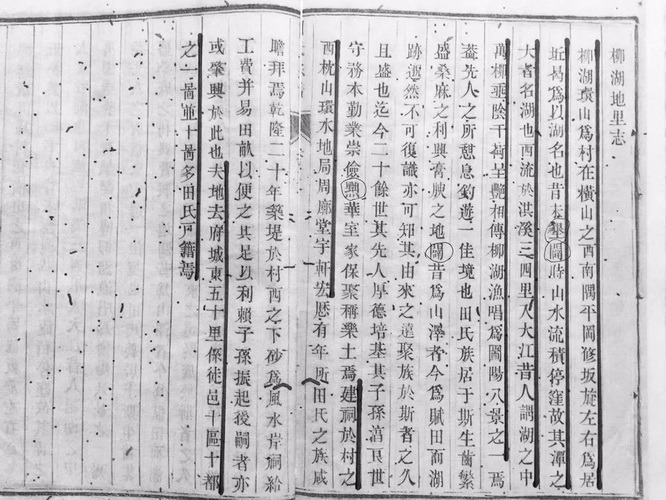 柳湖地里志
柳湖瀆山爲村在橫山之西南隅平岡修坂旋左右爲居
近曷爲以湖名也昔未墾闢時山水流積停窪故其渾之
大者名湖也西流於淇溪三四里入大江昔人謂湖之中
萬柳乘陰千荷呈艷相傳柳湖漁唱爲圖陽八景之一焉
葢先人之所憩息釣遊一佳境也田氏族居于斯生齒繁
盛桑麻之利興膏腴之地闢昔爲山澤者今爲賦田而湖
跡邈然不可復識亦可知其由來之遠聚族於斯者之久
且盛也迄今二十餘世其先人厚德培基其子孫蒞世
守務本勤業崇儉黜華室家保聚稱樂土焉建祠於村之
西枕山環水地局周廓堂宇軒宏歷有年所田氏之族咸
瞻拜焉乾隆二十年築堤於村西之下砂爲風水岸祠給
工費并易田畝以便之其足以利賴子孫振起後嗣者亦
或肇興於此也夫地去府城東五十里傑徒邑十區十都
之一啚並十啚多田氏戸籍焉